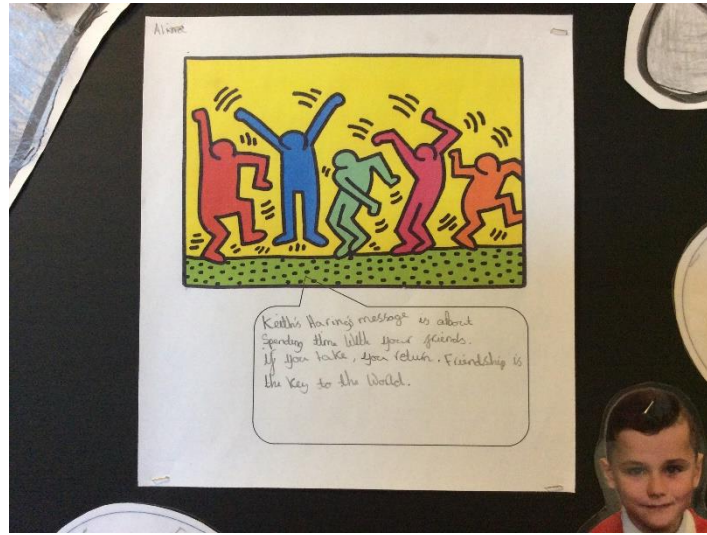 Keith's Haring's message is about
Spending time With your friends.
if you take, you return. Friendship is
the key to the World.